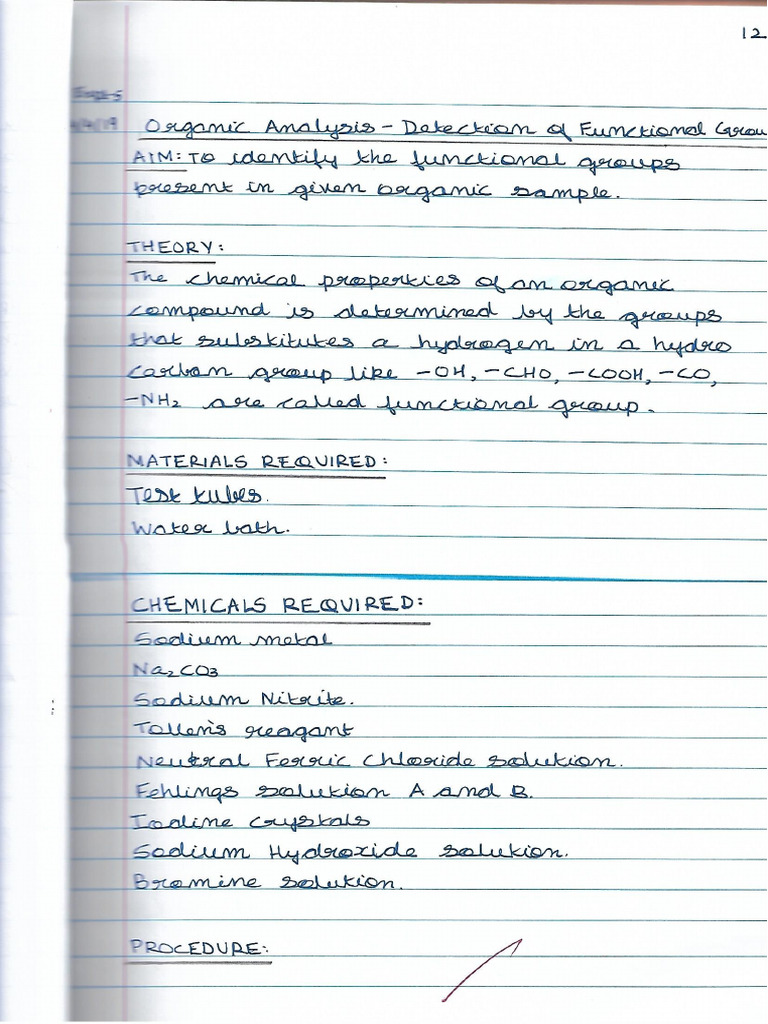 12
Organic Analysis - Detection of Functional Grou
AIM: To identify the functional groups
present in given organic sample.
THEORY:
The chemical properties of an organic
compound is determined by the groups
that substitutes a hydrogen in a hydro
carbon group like -OH, -CHO, -COOH, -CO,
-NH₂ are called functional group.
MATERIALS REQUIRED:
Test tubes.
Water bath.
CHEMICALS REQUIRED:
Sodium metal
Na₂CO₃
Sodium Nitrite.
Tollen's reagant
Neutral Ferric Chloride solution.
Fehlings solution A and B.
Iodine crystals
Sodium Hydroxide solution.
Bromine solution.
PROCEDURE: